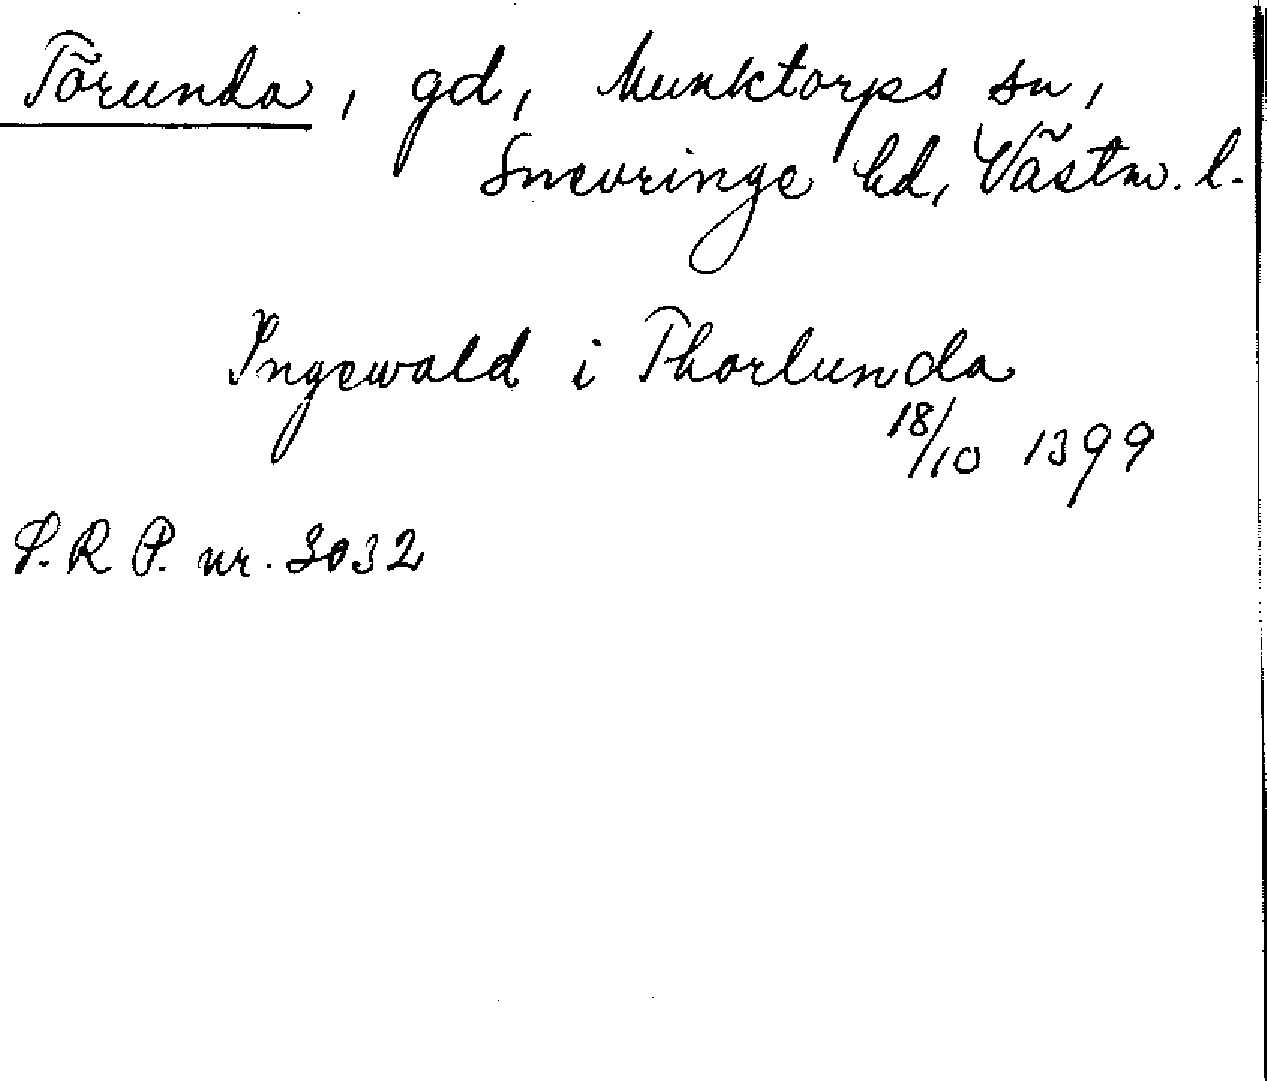 Törunda, gd, Munktorps sn,
Snevringe hd, Västm. l.
Ingewald i Thorlunda
18/10 1399
S.R P. nr. 3032